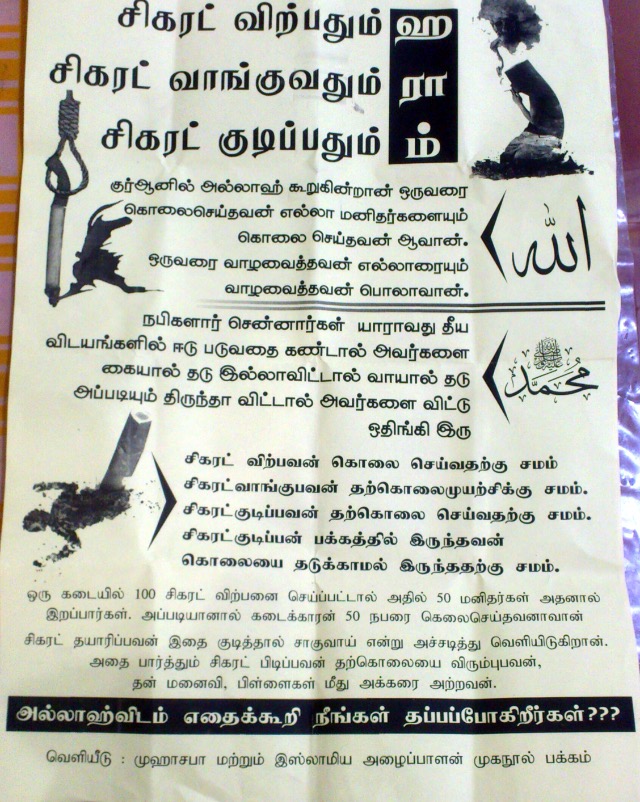 சிகரட் விற்பதும் ஹ
சிகரட் வாங்குவதும் ரா
சிகரட் குடிப்பதும் ம்
குர்ஆனில் அல்லாஹ் கூறுகின்றான் ஒருவரை
கொலைசெய்தவன் எல்லா மனிதர்களையும்
கொலை செய்தவன் ஆவான்.
ஒருவரை வாழவைத்தவன் எல்லாரையும்
வாழவைத்தவன் போலாவான்.
الله
நபிகளார் சென்னார்கள் யாராவது தீய
விடயங்களில் ஈடு படுவதை கண்டால் அவர்களை
கையால் தடு இல்லாவிட்டால் வாயால் தடு
அப்படியும் திருந்தா விட்டால் அவர்களை விட்டு
ஒதிங்கி இரு
محمد
சிகரட் விற்பவன் கொலை செய்வதற்கு சமம்
சிகரட்வாங்குபவன் தற்கொலைமுயற்சிக்கு சமம்.
சிகரட்குடிப்பவன் தற்கொலை செய்வதற்கு சமம்.
சிகரட்குடிப்பன் பக்கத்தில் இருந்தவன்
கொலையை தடுக்காமல் இருந்ததற்கு சமம்.
ஒரு கடையில் 100 சிகரட் விற்பனை செய்பட்டால் அதில் 50 மனிதர்கள் அதனால்
இறப்பார்கள். அப்படியானால் கடைக்காரன் 50 நபரை கெலைசெய்தவனாவான்
சிகரட் தயாரிப்பவன் இதை குடித்தால் சாகுவாய் என்று அச்சடித்து வெளியிடுகிறான்.
அதை பார்த்தும் சிகரட் பிடிப்பவன் தற்கொலையை விரும்புபவன்,
தன் மனைவி, பிள்ளைகள் மீது அக்கரை அற்றவன்.
அல்லாஹ்விடம் எதைக்கூறி நீங்கள் தப்பப்போகிறீர்கள்???
வெளியீடு : முஹாசபா மற்றும் இஸ்லாமிய அழைப்பாளன் முகநூல் பக்கம்